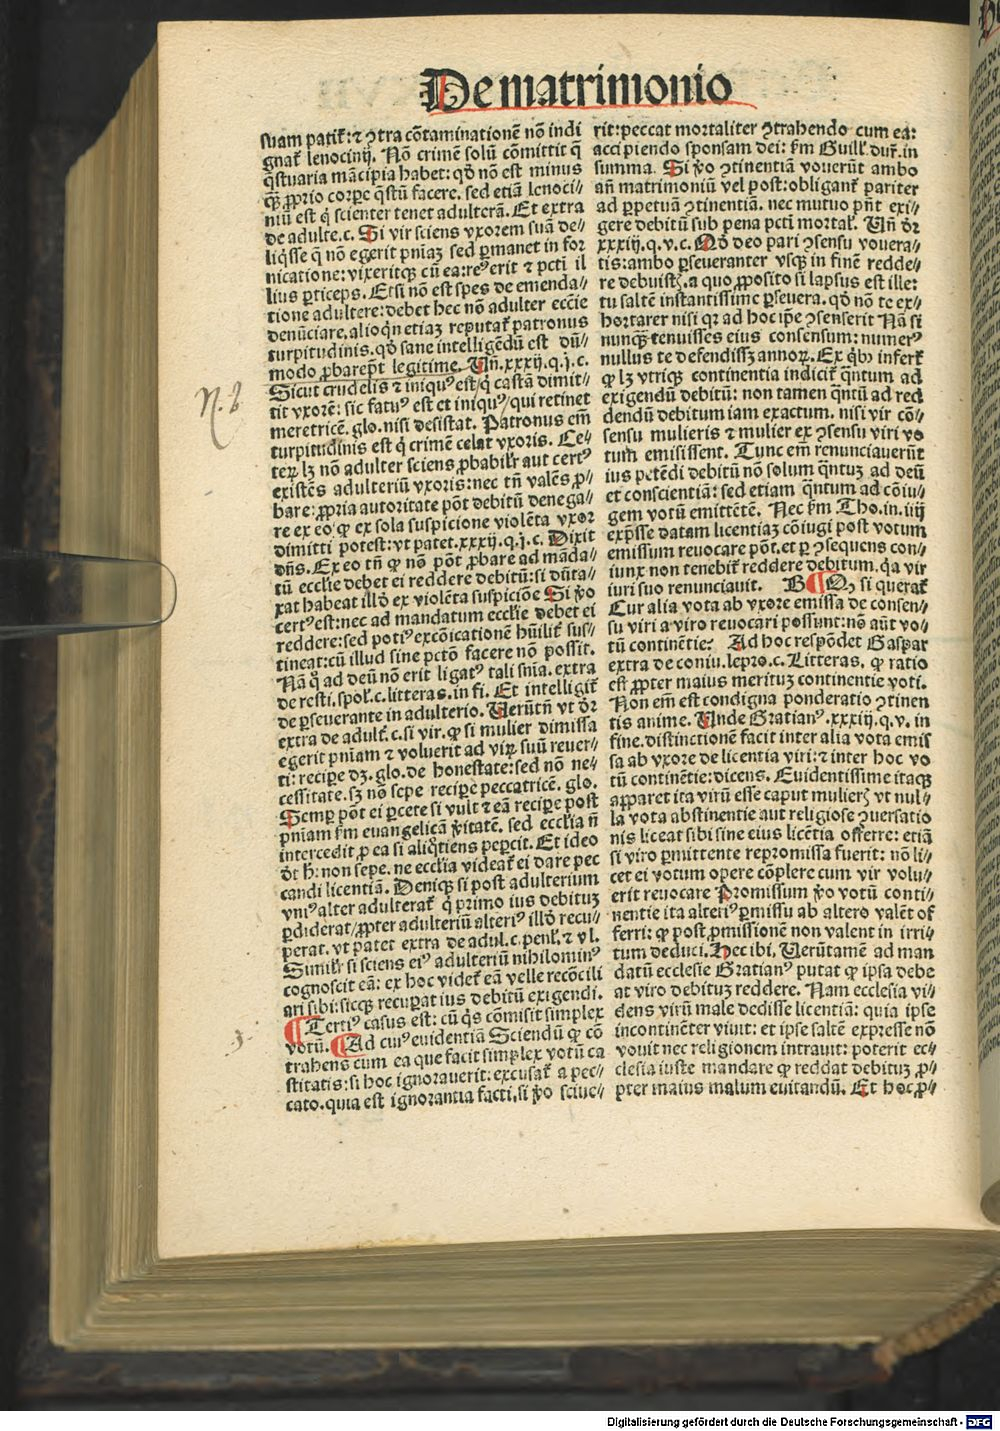 De matrimonio
suam patit᷑: ⁊ ꝯtra cōtaminationē nō indi
gnat᷑ lenocinij. Nō crimē solū cōmittit q̄
q̄stuaria mācipia habet: qđ nō est minus
q̄ꝫ ꝓprio corpe q̄stū facere. sed etiā lenoci-
niū est q̇ scienter tenet adulterā. Et extra
de adulte.c. Si vir sciens vxorem suā de-
liq̇sse q̄ nō egerit pniaꝫ sed ꝑmanet in for
nicatione: vixeritqꝫ cū ea: reꝰ erit ⁊ pcti il
lius ꝑticeps. Etsi nō est spes de emenda-
tione adultere: debet hec nō adulter eccīe
denūciare. alioq̇n etiaꝫ reputat᷑ patronus
turpitudinis. qđ sane intelligēdū est dū-
modo ꝓbarepn̄t legitime. Vn̄.xxxij.q.j.c.
Sicut crudelis ⁊ iniquꝰ est/q̇ castā dimit-
tit vxorē: sic fatuꝰ est et iniquꝰ/qui retinet
meretricē. glo. nisi desistat. Patronus em̄
turpitudinis est q̇ crimē celat vxoris. Ce-
teꝝ lꝫ nō adulter sciens ꝓbabil'r aut certꝰ
existēs adulteriū vxoris: nec tn̄ valēs ꝓ-
bare: ꝓpria autoritate pōt debitū denega-
re ex eo ꝙ ex sola suspicione violēta vxor
dimitti potest: vt patet.xxxij.q.j.c. Dixit
dn̄s. Ex eo tn̄ ꝙ nō pōt ꝓbare ad māda-
tū ecclie debet ei reddere debitū: si dūta-
xat habeat illđ ex violēta suspiciōe Si v̊o
certꝰ est: nec ad mandatum ecclie debet ei
reddere: sed potiꝰ excōicationē hūilit᷑ sus-
tineat: cū illud sine pctō facere nō possit.
Nā q̊ ad deū nō erit ligatꝰ tali snīa. extra
de resti. spol̄.c.litteras. in fi. Et intelligit᷑
de ꝑseuerante in adulterio. Verūtn̄ vt dr̄
extra de adult᷑.c. si vir. ꝙ si mulier dimissa
egerit pniam ⁊ voluerit ad viꝝ suū reuer-
ti: recipe dꝫ. glo. de honestate: sed nō ne-
cessitate. sꝫ nō sepe recipe peccatricē. glo.
Semꝑ pōt ei ꝑcere si vult ⁊ eā recipe post
pniam ẜm euangelicā v̊itatē. sed ecclīa n̄
intercedit ꝓ ea si aliq̄tiens pepcit. Et ideo
dr̄ h̄: non sepe. ne ecclīa videat᷑ ei dare pec
candi licentiā. Deniqꝫ si post adulterium
vniꝰ alter adulterat᷑ q̇ primo ius debituꝫ
ꝑdiderat/ꝓpter adulteriū alteriꝰ illđ recu-
perat. vt patet extra de adul.c. penl̄. ⁊ vl.
Similr̄ si sciens eiꝰ adulteriū nihilominꝰ
cognoscit eā: ex hoc videt᷑ eā velle recōcili
ari sibi: sicqꝫ recuꝑat ius debitū exigendi.
¶ Tertiꝰ casus est: cū q̇s cōmisit simplex
votū. ¶ Ad cuiꝰ euidentiā Sciendū ꝙ cō
trahens cum ea que facit simplex votū ca
stitatis: si hoc ignorauerit: excusat᷑ a pec-
cato. quia est ignorantia facti. si v̊o sciue-
rit: peccat mortaliter ꝯtrahendo cum ea:
accipiendo sponsam dei: ẜm Guill̄. dur̄. in
summa. Si v̊o ꝯtinentiā vouerūt ambo
an̄ matrimoniū vel post: obligant᷑ pariter
ad ꝑpetuā ꝯtinentiā. nec mutuo pn̄t exi-
gere debitū sub pena pcti mortal̄. Vn̄ dr̄
xxxiij.q.v.c. Qđ deo pari ꝯsensu vouera-
tis: ambo ꝑseueranter vsqꝫ in finē redde-
re debuistꝭ. a quo ꝓposito si lapsus est ille:
tu saltē instantissime ꝑseuera. qđ nō te ex-
hortarer nisi qꝛ ad hoc ip̄e ꝯsenserit Nā si
nunqꝫ tenuisses eius consensum: numerꝰ
nullus te defendissꝫ annoꝝ. Ex q̇bꝰ infert᷑
ꝙ lꝫ vtriqꝫ continentia indicit᷑ q̄ntum ad
exigendū debitū: non tamen q̄ntū ad red
dendū debitum iam exactum. nisi vir cō-
sensu mulieris ⁊ mulier ex ꝯsensu viri vo
tum emisissent. Tunc em̄ renunciauerūt
ius petēdi debitū nō solum q̄ntuꝫ ad deū
et conscientiā: sed etiam q̄ntum ad cōiu-
gem votū emittētē. Nec ẜm Tho. in.iiij
exp̄sse datam licentiaꝫ cōiugi post votum
emissum reuocare pōt. et ꝑ ꝯsequens con-
iunx non tenebit᷑ reddere debitum. q̇a vir
iuri suo renunciauit. B ¶ Qꝫ si querat᷑
Cur alia vota ab vxore emissa de consen-
su viri a viro reuocari possunt: nō aūt vo-
tū continētie? Ad hoc respōdet Gaspar
extra de coniu. lepro.c. Litteras. ꝙ ratio
est ꝓpter maius merituꝫ continentie voti.
Non em̄ est condigna ponderatio ꝯtinen
tis anime. Vnde Gratianꝰ.xxxiij.q.v. in
fine. distinctionē facit inter alia vota emis
sa ab vxore de licentia viri: ⁊ inter hoc vo
tū continētie: dicens. Euidentissime itaqꝫ
apparet ita virū esse caput mulierꝭ vt nul-
la vota abstinentie aut religiose ꝯuersatio
nis liceat sibi sine eius licētia offerre: etiā
si viro ꝑmittente repromissa fuerit: nō li-
cet ei votum opere cōplere cum vir volu-
erit reuocare Promissum v̊o votū conti-
nentie ita alteriꝰ ꝑmissu ab altero valēt of
ferri: ꝙ post ꝓmissionē non valent in irri-
tum deduci. Hec ibi. Verūtamē ad man
datū ecclesie Gratianꝰ putat ꝙ ipsa debe
at viro debituꝫ reddere. Nam ecclesia vi-
dens virū male dedisse licentiā: quia ipse
incontinēter viuit: et ipse saltē expresse nō
vouit nec religionem intrauit: poterit ec-
clesia iuste mandare ꝙ reddat debituꝫ ꝓ-
pter maius malum euitandū. Et hoc ꝓ-
Digitalisierung gefördert durch die Deutsche Forschungsgemeinschaft - DFG